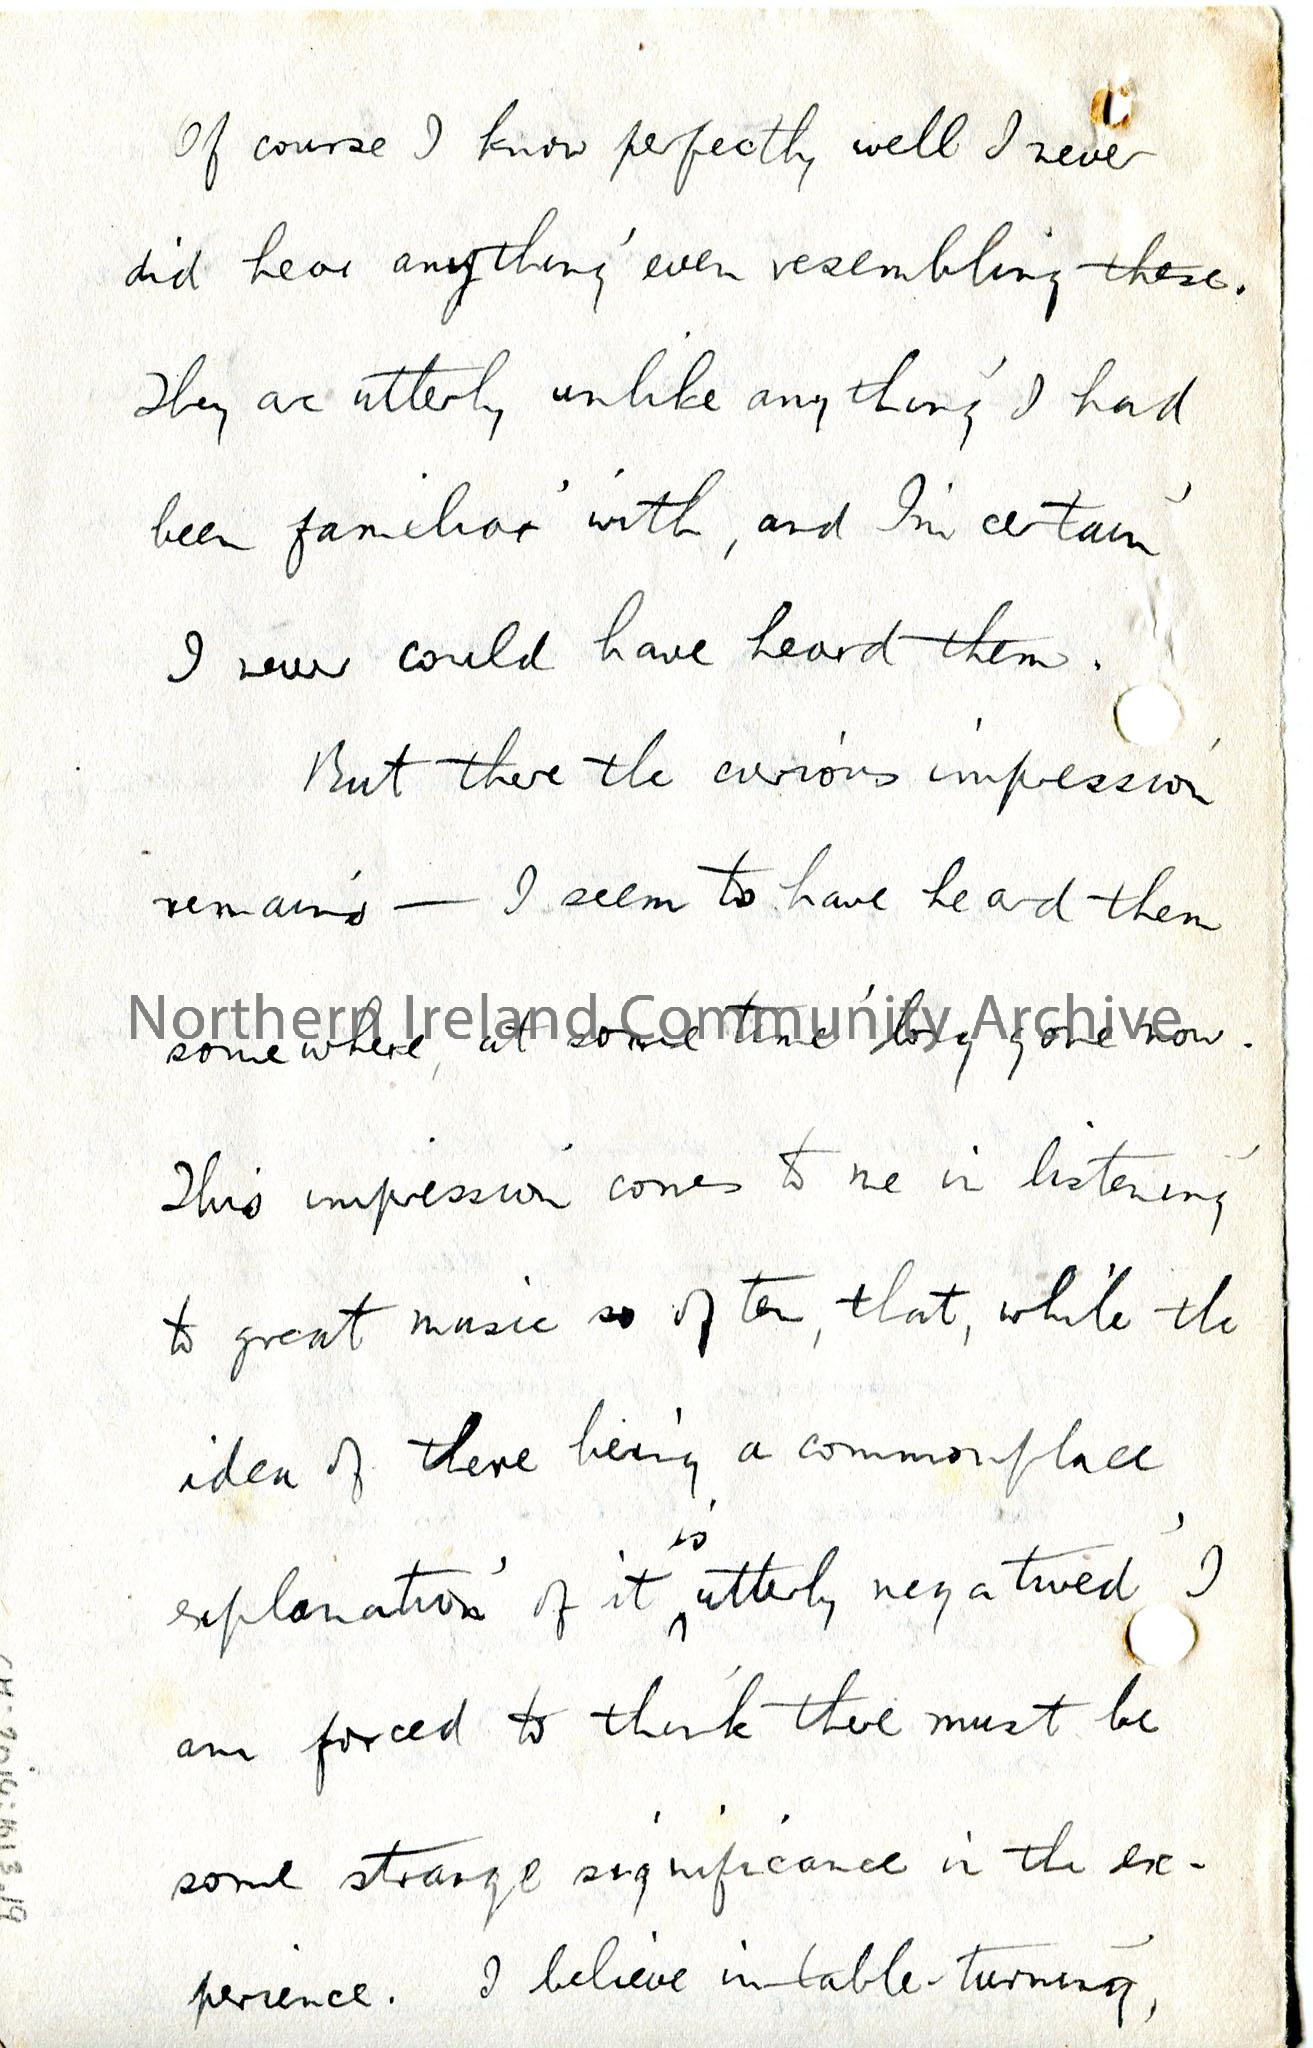 Of course I know perfectly well I never
did hear anything even resembling these.
They are utterly unlike anything I had
been familiar with, and I'm certain
I never could have heard them.
But there the curious impression
remains — I seem to have heard them
Northern Ireland Community Archive
somewhere, at some time long gone now.
This impression comes to me in listening
to great music so often, that, while the
idea of there being a commonplace
is
explanation of it utterly negatived I
am forced to think there must be
some strange significance in the ex-
perience. I believe in table-turning,